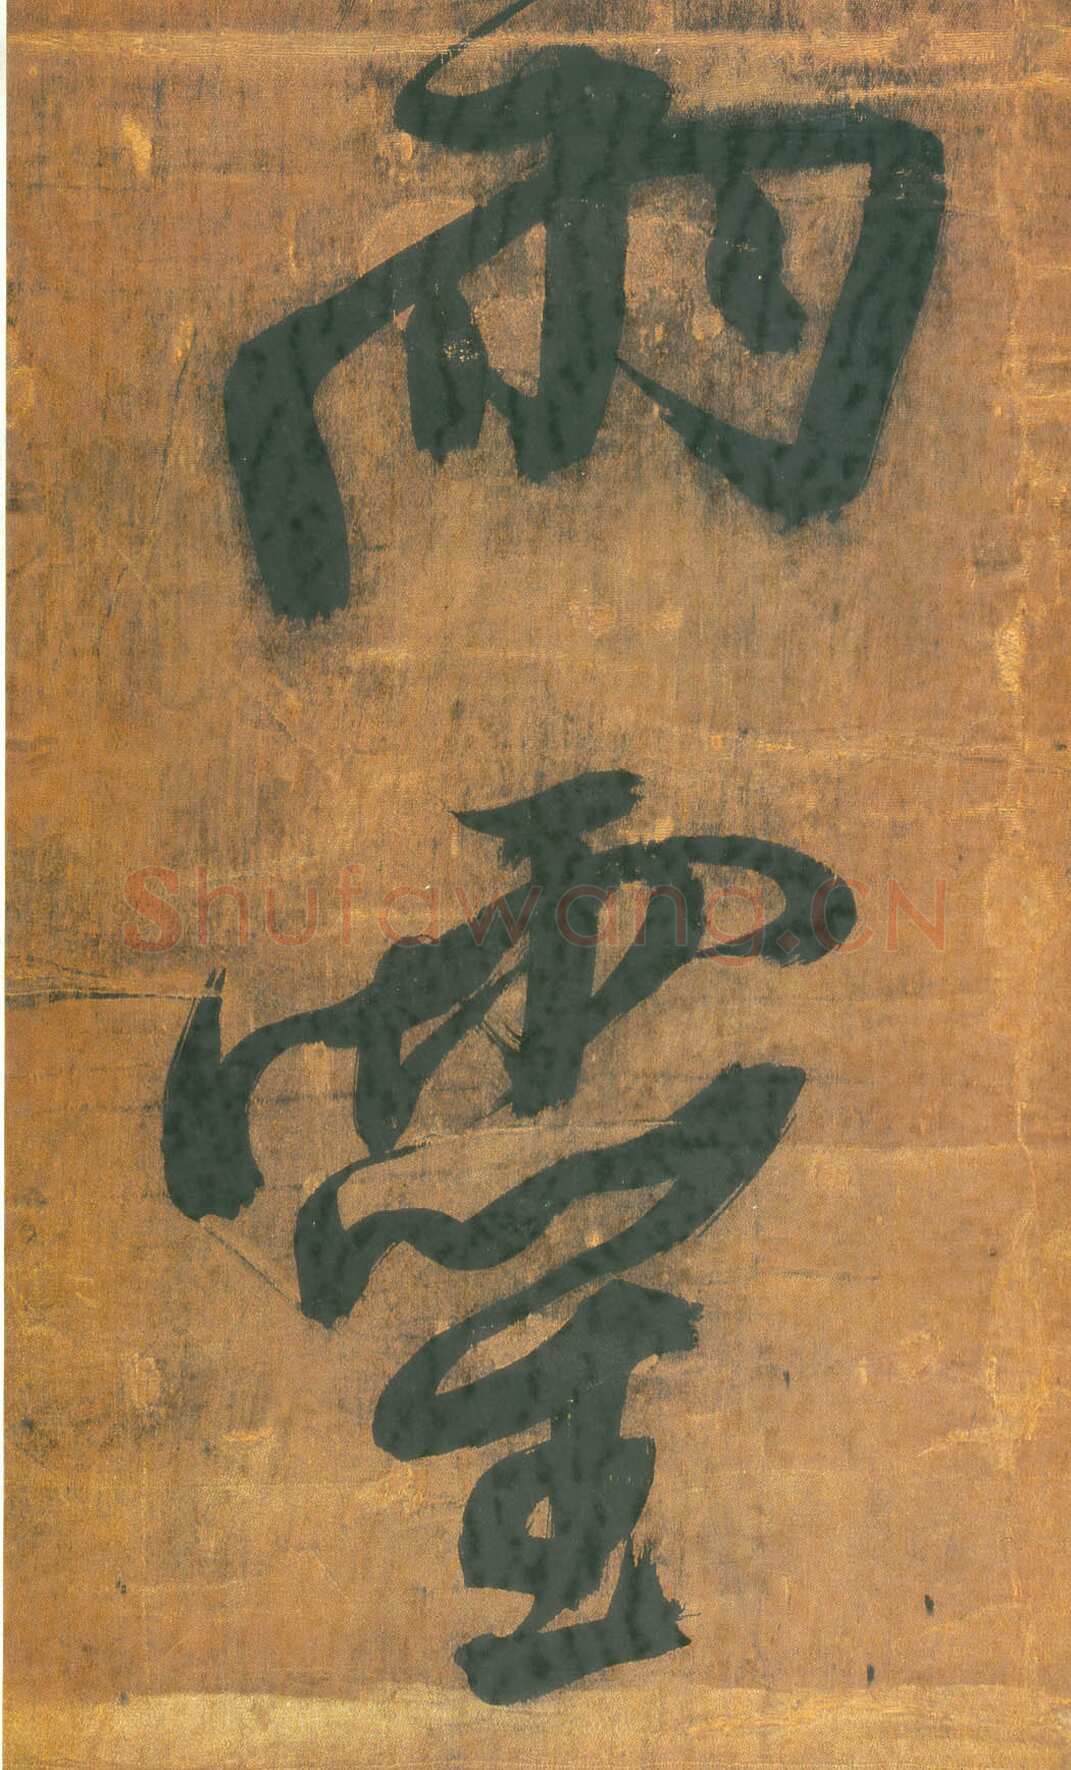 雨
靈
Shufawang.CN